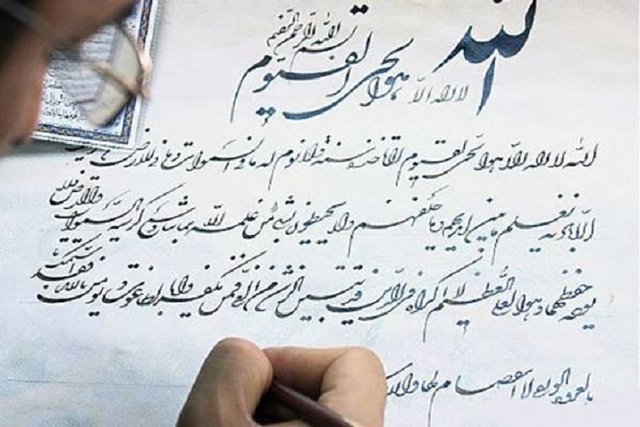 بسم الله الرحمن الرحیم
الله لا اله الا هو الحی القیوم
الله لا اله الا هو الحی القیوم لا تاخذه سنة ولا نوم له ما فی السموات وما فی الارض
الا باذنه یعلم ما بین ایدیهم وما خلفهم ولا یحیطون بشئ من علمه الا بما شاء وسع کرسیه السموات والارض ولا
یوده حفظهما وهو العلی العظیم لا اکراه فی الدین قد تبین الرشد من الغی فمن یکفر بالطاغوت ویومن بالله فقد استمسک
بالعروة الوثقی لا انفصام لها والله